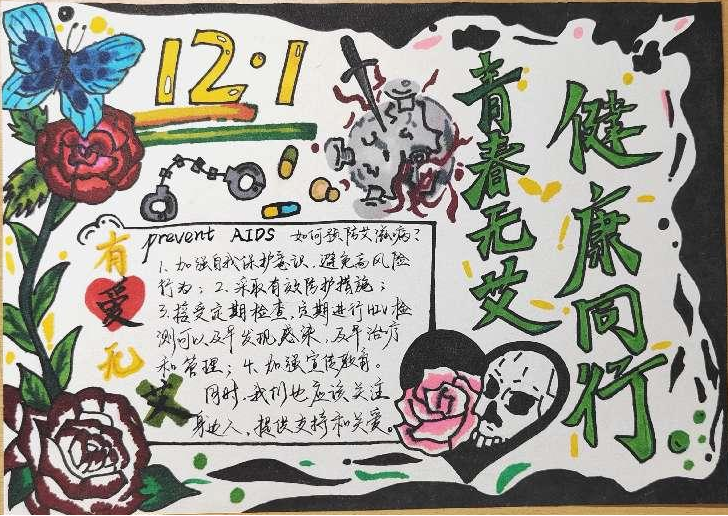 12·1
青春无艾
健康同行
有爱无艾
prevent AIDS 如何预防艾滋病?
1、加强自我保护意识，避免高风险
行为；2、采取有效防护措施；
3、接受定期检查，定期进行HIV检
测可以及早发现感染，及早治疗
和管理；4、加强宣传教育。
同时，我们也应该关注
身边人，提供支持和关爱。